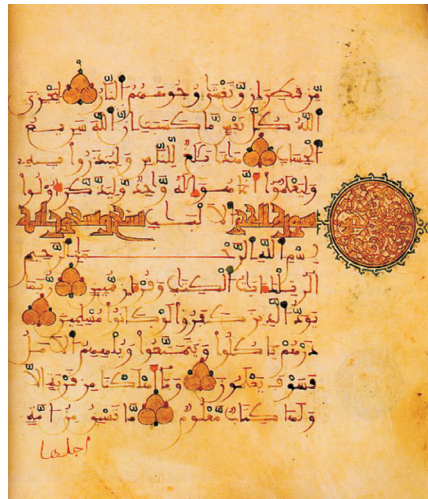 مِّن قَطِرَانٍ وَتَغْشَىٰ وُجُوهَهُمُ النَّارُ لِيَجْزِيَ
اللَّهُ كُلَّ نَفْسٍ مَّا كَسَبَتْ إِنَّ اللَّهَ سَرِيعُ
الْحِسَابِ هَٰذَا بَلَٰغٌ لِّلنَّاسِ وَلِيُنذَرُوا بِهِ
وَلِيَعْلَمُوا أَنَّمَا هُوَ إِلَٰهٌ وَٰحِدٌ وَلِيَذَّكَّرَ أُولُوا
سورة الحجر الْأَلْبَٰبِ تسع وتسعون آية
بِسْمِ اللَّهِ الرَّحْمَٰنِ الرَّحِيمِ
الٓر تِلْكَ ءَايَٰتُ الْكِتَٰبِ وَقُرْءَانٍ مُّبِينٍ رُّبَمَا
يَوَدُّ الَّذِينَ كَفَرُوا لَوْ كَانُوا مُسْلِمِينَ
ذَرْهُمْ يَأْكُلُوا وَيَتَمَتَّعُوا وَيُلْهِهِمُ الْأَمَلُ
فَسَوْفَ يَعْلَمُونَ وَمَا أَهْلَكْنَا مِن قَرْيَةٍ إِلَّا
وَلَهَا كِتَابٌ مَّعْلُومٌ مَّا تَسْبِقُ مِنْ أُمَّةٍ
أجلها